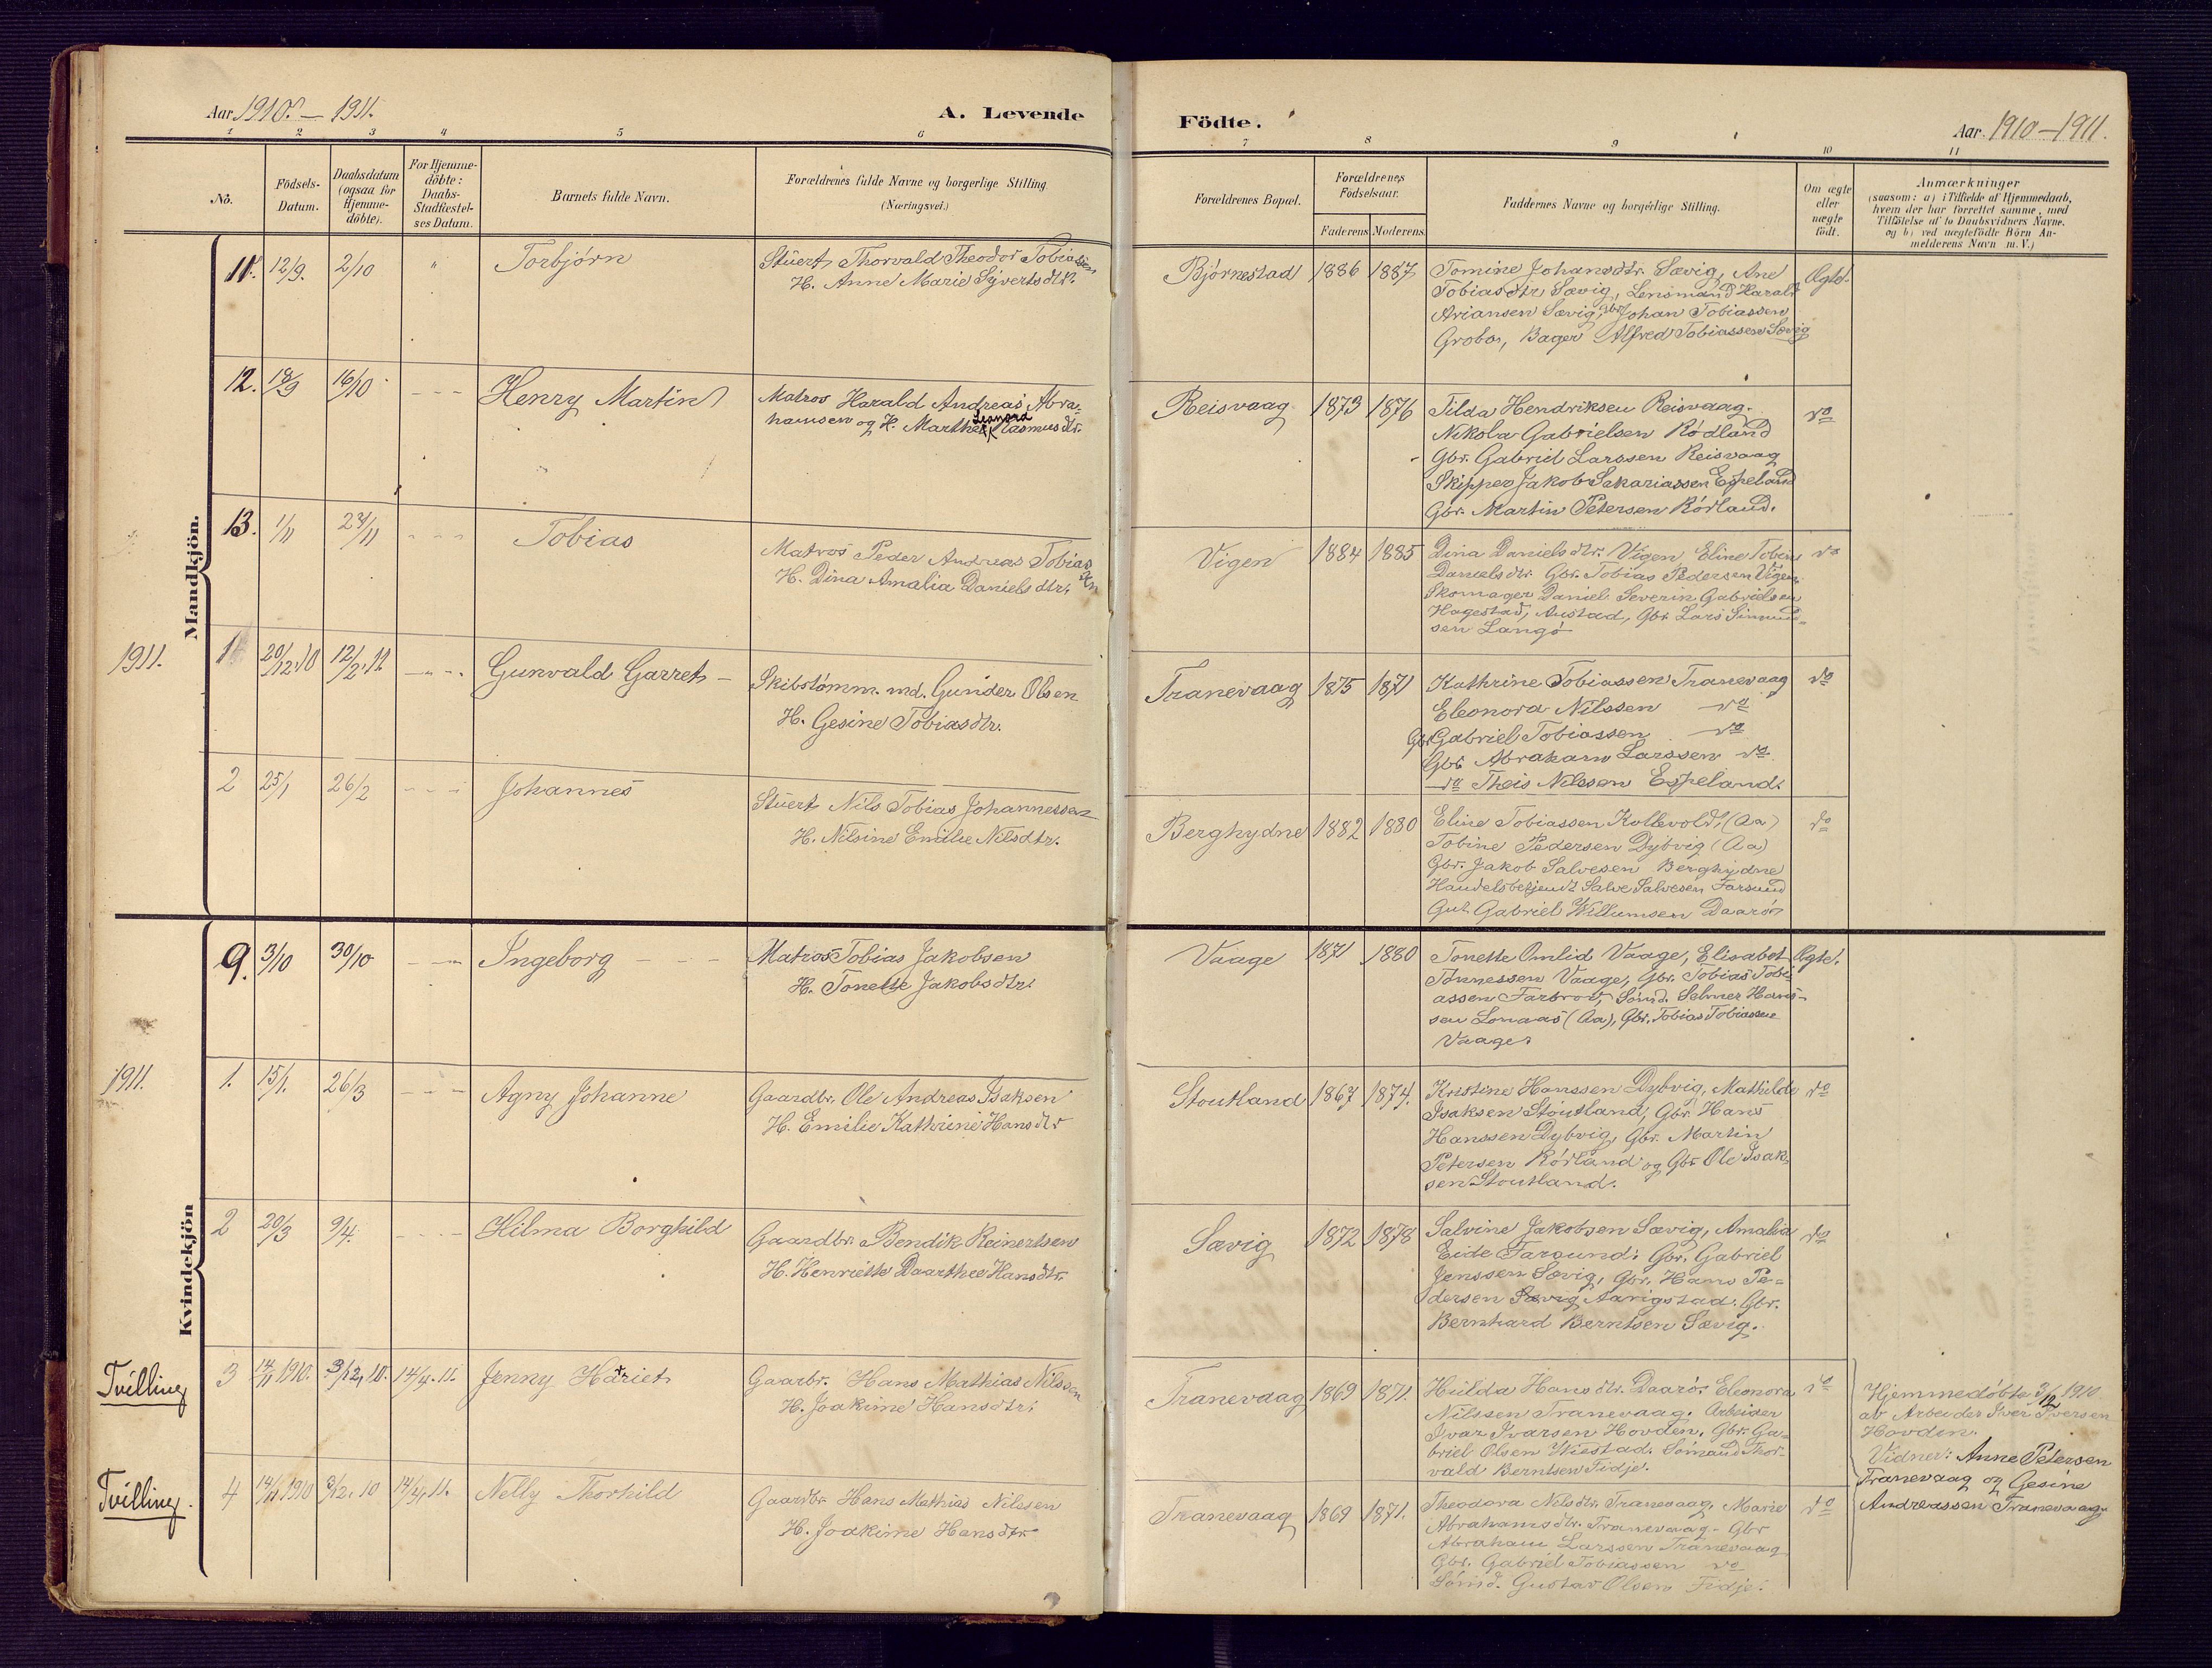 Aar 1910. — 1911.
A. Levende
Födte.
Aar. 1910 — 1911.
1 2 3 4 5 6 7 8 9 10 11
No.
Födsels-
Datum.
Daabsdatum
(ogsaa for
Hjemme-
döbte).
For Hjemme-
döbte:
Daabs-
Stadfæstel-
ses Datum.
Barnets fulde Navn.
Forældrenes fulde Navne og borgerlige Stilling
(Næringsvei.)
Forældrenes Bopæl.
Forældrenes
Födselsaar.
Faderens
Moderens
Faddernes Navne og borgerlige Stilling.
Om ægte
eller
uægte
födt.
Anmærkninger
(saasom: a) i Tilfælde af Hjemmedaab,
hvem der har forrettet samme, med
Tilföielse af to Daabsvidners Navne.
og b) ved uægtefödte Börn An-
melderens Navn m. V.)
Mandkjön.
11. 12/9. 2/10 " Torbjørn
Stuert Thorvald Theodor Tobiassen
H. Anne Marie Syvertsdtr.
Bjørnestad 1886 1887
Tomine Johansdtr. Sævig, Ane
Tobiasdtr. Sævig, Lensmand Harald
Ariansen Sævig, Gbr. Johan Tobiassen
Grobos, Bager Alfred Tobiassen Sævig
Ægte.
12. 18/9 16/10 - - - Henry Martin
Matros Harald Andreas Abra-
hamsen og H. Marthe Leonora Rasmusdtr.
Reisvaag 1873 1876
Tilda Hendriksen Reisvaag.
Nikola Gabrielsen Rödland
Gbr. Gabriel Larssen Reisvaag
Skipper Jakob Sakariassen Espeland
Gbr. Martin Petersen Rörland.
do
13. 1/11 24/11 - - - Tobias
Matros Peder Andreas Tobiassen
H. Dina Amalia Danielsdtr.
Vigen 1884 1885
Dina Danielsdtr. Vigen, Eline Tobine
Danielsdtr. Gbr. Tobias Pedersen Vigen.
Skomager Daniel Severin Gabrielsen
Hagestad, Austad, Gbr. Lars Simund-
sen Langö
do
1911.
1 20/12.10 12/2.11 - - - Gunvald Garret -
Skibstömm.md. Gunder Olsen
H. Gesine Tobiasdtr.
Tranevaag 1875 1871
Kathrine Tobiassen Tranevaag
Eleonora Nilssen do
Gbr. Gabriel Tobiassen do
Gbr. Abraham Larssen do
do Theis Nilssen Espeland.
do
2 25/1 26/2 - - - Johannes
Stuert Nils Tobias Johannessen
H. Nilsine Emilie Nilsdtr.
Berghydne 1882 1880
Eline Tobiassen Kollevold, (Aa)
Tobine Pedersen Dybvig (Aa)
Gbr. Jakob Salvesen Berghydne
Handelsbetjent Salve Salvesen Farsund
Gut Gabriel Willumsen Daarö
do
Kvindekjön
9. 3/10 30/10 - - - Ingeborg - - -
Matros Tobias Jakobsen
H. Tonette Jakobsdtr.
Vaage 1871 1880
Tonette Omlid Vaage, Elisabet
Tönnessen Vaage, Gbr. Tobias Tobi-
assen Farbrot, Sömd. Selmer Hans-
sen Lonaas (Aa), Gbr. Tobias Tobiassen
Vaage.
Ægte.
1911.
1. 15/1. 26/3 - - - Agny Johanne
Gaardbr. Ole Andreas Isaksen
H. Emilie Kathrine Hansdtr
Stoutland 1867 1874.
Kristine Hanssen Dybvig, Mathilde
Isaksen Stoutland, Gbr. Hans
Hanssen Dybvig, Gbr. Martin
Petersen Rörland og Gbr. Ole Isak-
sen Stoutland.
do
2 20/3 9/4. - - - Hilma Borghild
Gaardbr. Bendik Reinertsen
H. Henriette Daarthea Hansdtr.
Sævig 1872 1878
Salvine Jakobsen Sævig, Amalia
Eide Farsund. Gbr. Gabriel
Jenssen Sævig, Gbr. Hans Pe-
dersen Sævig Aarigstad. Gbr.
Bernhard Berntsen Sævig.
do
Tvilling
3 14/11 1910. 3/12, 10. 14/4. 11. Jenny Hariet
Gaarbr. Hans Mathias Nilssen
H. Joakime Hansdtr.
Tranevaag 1869 1871.
Hulda Hansdtr. Daarö. Eleonora
Nilssen Tranevaag. Arbeider
Ivar Ivarsen Hovden. Gbr. Ga-
briel Olsen Wiestad. Sömand Thor-
vald Berntsen Fidje.
do
Hjemmedöbte 3/12 1910.
av Arbeider Iver Iversen
Hovden.
Vidner: Anne Petersen
Tranevaag og Gesine
Andreassen Tranevaag.
Tvilling.
4 14/11 1910 3/12, 10 14/4. 11. Nelly Thorhild
Gaardbr. Hans Mathias Nilssen
H. Joakime Hansdtr
Tranevaag 1869 1871.
Theodora Nilsdtr. Tranevaag, Marie
Abrahamsdtr. Tranevaag - Gbr
Abraham Larssen Tranevaag
Gbr. Gabriel Tobiassen do
Sömd. Gustav Olsen Fidje.
do